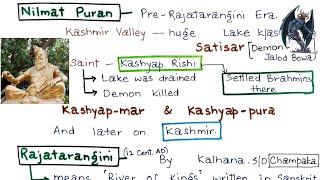 Nilmat Puran → Pre-Rajatarangini Era.
Kashmir Valley – huge Lake k/as
Satisar Demon
Jalod Bowa
Saint – Kashyap Rishi
↳ Lake was drained
↳ Demon killed
Settled Brahmins there
Kashyap-mar & Kashyap-pura
And later on Kashmir.
Rajatarangini (12 Cent. AD) By Kalhana. S/O Champaka
↳ means 'River of Kings' written in Sanskrit